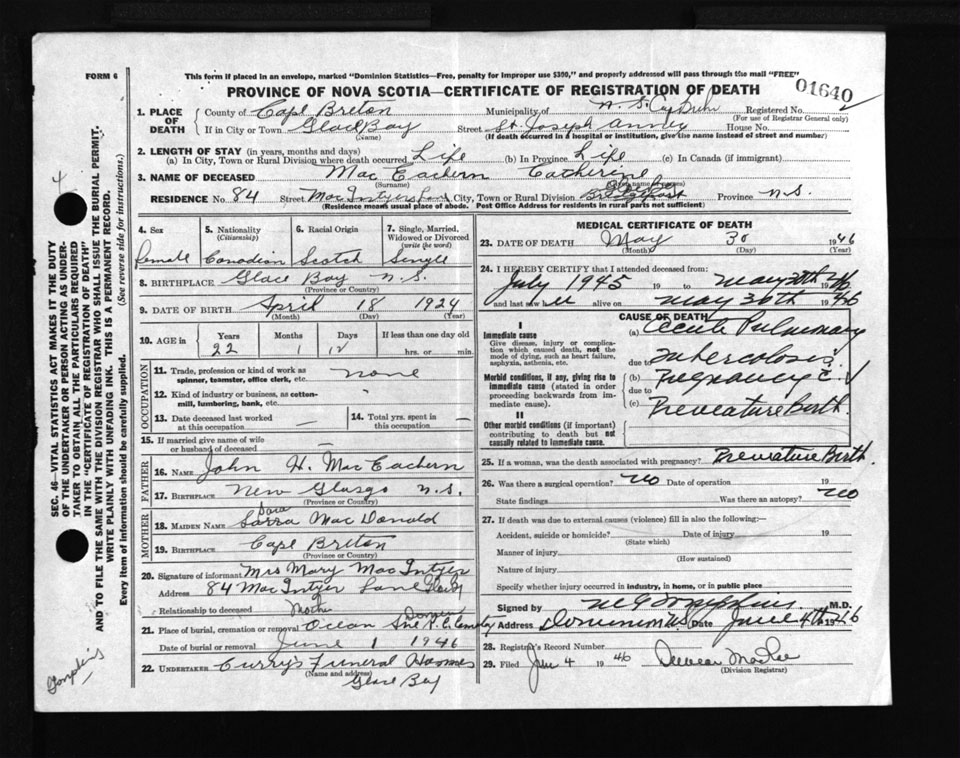 FORM 6
This form if placed in an envelope, marked "Dominion Statistics—Free, penalty for improper use $300," and properly addressed will pass through the mail "FREE"
PROVINCE OF NOVA SCOTIA—CERTIFICATE OF REGISTRATION OF DEATH
01640
1. PLACE OF DEATH
County of Cape Breton Municipality of N. S. Registered No.
(For use of Registrar General only)
If in City or Town Glace Bay Street St. Joseph House No.
(Name) (If death occurred in a hospital or institution, give the name instead of street and number)
2. LENGTH OF STAY (in years, months and days)
(a) In City, Town or Rural Division where death occurred Life (b) In Province Life (c) In Canada (if immigrant)
3. NAME OF DECEASED Mac Eachern Catherine
(Surname)
RESIDENCE No. 84 Street Mac Intyer Lane City, Town or Rural Division Province N.S.
(Residence means usual place of abode. Post Office Address for residents in rural parts not sufficient)
4. Sex 5. Nationality (Citizenship) 6. Racial Origin 7. Single, Married, Widowed or Divorced (write the word)
Female Canadian Scotch Single
8. BIRTHPLACE Glace Bay N.S.
(Province or Country)
9. DATE OF BIRTH April 18 1924
(Month) (Day) (Year)
10. AGE in Years Months Days If less than one day old
22 1 12 hrs. or min.
OCCUPATION
11. Trade, profession or kind of work as spinner, teamster, office clerk, etc. none
12. Kind of industry or business, as cotton-mill, lumbering, bank, etc.
13. Date deceased last worked at this occupation — 14. Total yrs. spent in this occupation —
15. If married give name of wife or husband of deceased —
FATHER
16. NAME John H. Mac Eachern
17. BIRTHPLACE New Glasgo N.S.
(Province or Country)
MOTHER
18. MAIDEN NAME Sarra Mac Donald
19. BIRTHPLACE Cape Breton
(Province or Country)
20. Signature of informant Mrs Mary Mac Intyer
Address 84 Mac Intyer Lane
Relationship to deceased Mother
21. Place of burial, cremation or removal R.C. Cemetery
Date of burial or removal June 1 1946
22. UNDERTAKER Curry's Funeral Hoomes
(Name and address)
Glace Bay
MEDICAL CERTIFICATE OF DEATH
23. DATE OF DEATH May 30 1946
(Month) (Day) (Year)
24. I HEREBY CERTIFY that I attended deceased from:
July 1945 19 to May 30th 1946
and last saw her alive on May 30th 1946
CAUSE OF DEATH
I
Immediate cause
Give disease, injury or complication which caused death, not the mode of dying, such as heart failure, asphyxia, asthenia, etc.
(a) Acute Pulmonary
due to Tuberculosis
Morbid conditions, if any, giving rise to immediate cause (stated in order proceeding backwards from immediate cause).
(b) Pregnancy c̄
due to
(c) Premature Birth.
II
Other morbid conditions (if important) contributing to death but not causally related to immediate cause.
25. If a woman, was the death associated with pregnancy? Premature Birth.
26. Was there a surgical operation? no Date of operation 19
State findings Was there an autopsy? no
27. If death was due to external causes (violence) fill in also the following:—
Accident, suicide or homicide? Date of injury 19
(State which)
Manner of injury
(How sustained)
Nature of injury
Specify whether injury occurred in industry, in home, or in public place
Signed by M.D.
Address Dominion N.S. Date June 4th 1946
28. Registrar's Record Number
29. Filed Jun 4 1946
(Division Registrar)
SEC. 46—VITAL STATISTICS ACT MAKES IT THE DUTY
OF THE UNDERTAKER OR PERSON ACTING AS UNDER-
TAKER TO OBTAIN ALL THE PARTICULARS REQUIRED
IN THE "CERTIFICATE OF REGISTRATION OF DEATH"
AND TO FILE THE SAME WITH THE DIVISION REGISTRAR WHO SHALL ISSUE THE BURIAL PERMIT.
WRITE PLAINLY WITH UNFADING INK. THIS IS A PERMANENT RECORD.
Every item of information should be carefully supplied. (See reverse side for instructions.)
4
Tompkins